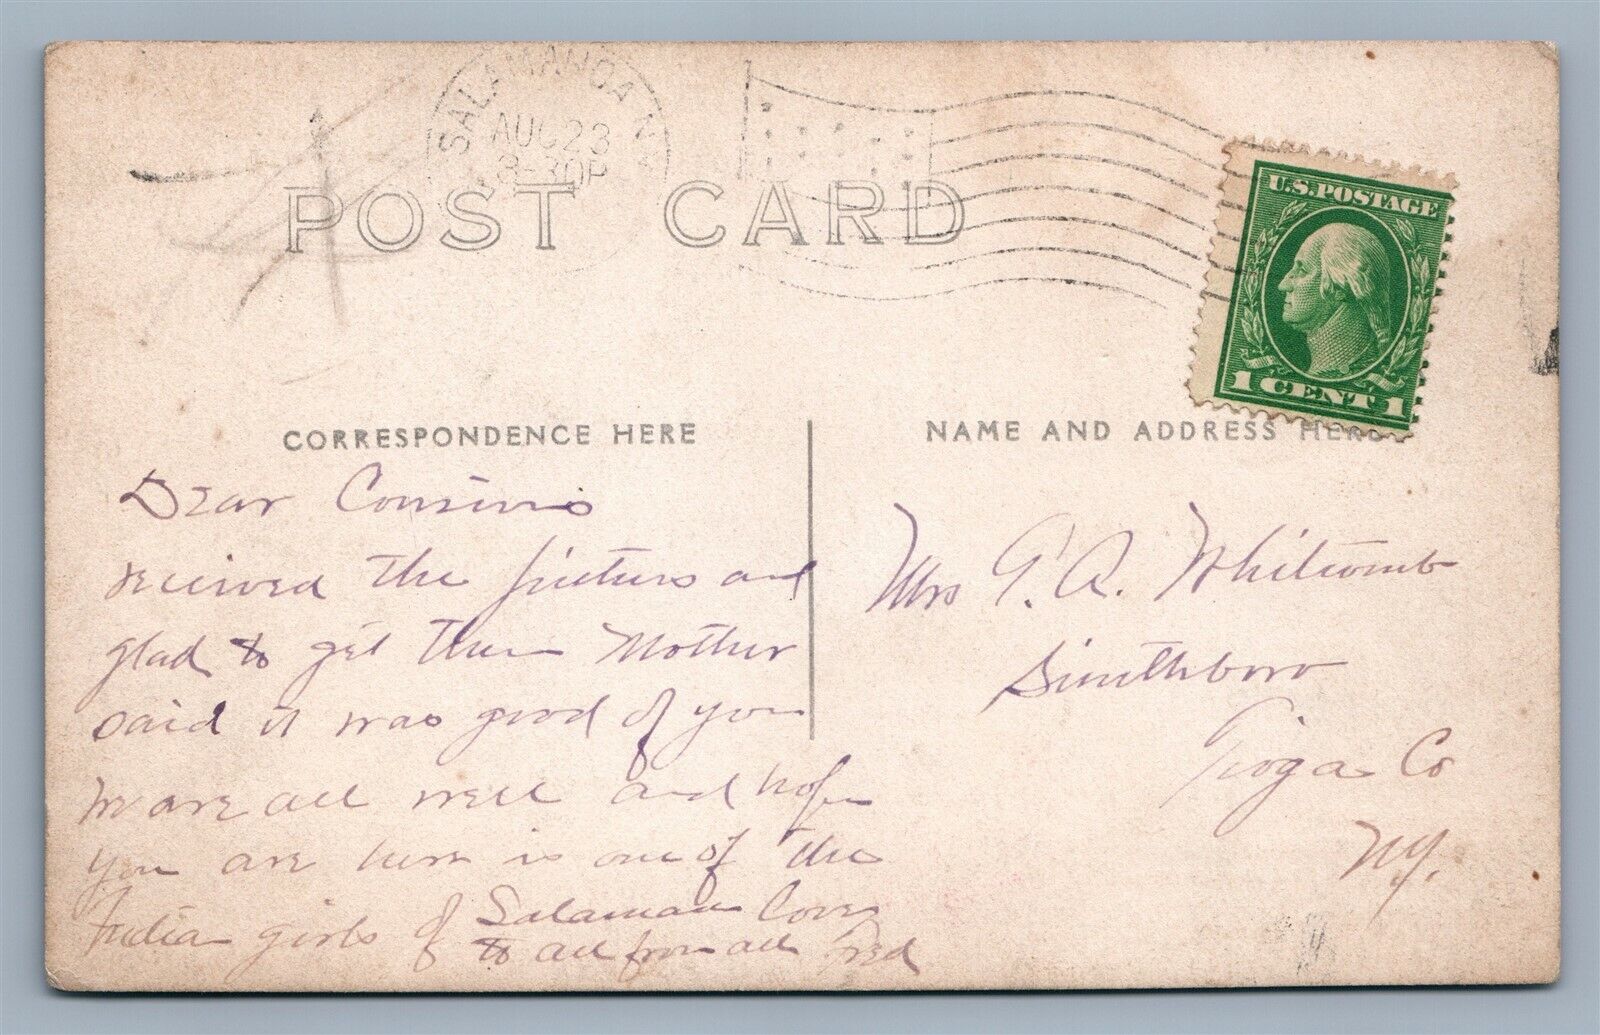 SALAMANCA N.Y.
AUG 23
8-30P
POST CARD
U.S. POSTAGE
1 CENT 1
CORRESPONDENCE HERE
NAME AND ADDRESS HERE
Dear Cousins
received the pictures and
glad to get them Mother
said it was good of you
We are all well and hope
you are here is one of the
Indian girls of Salaman Love
to all from all Fred
Mrs G. A. Whitcomb
Smithboro
Tioga Co
N.Y.